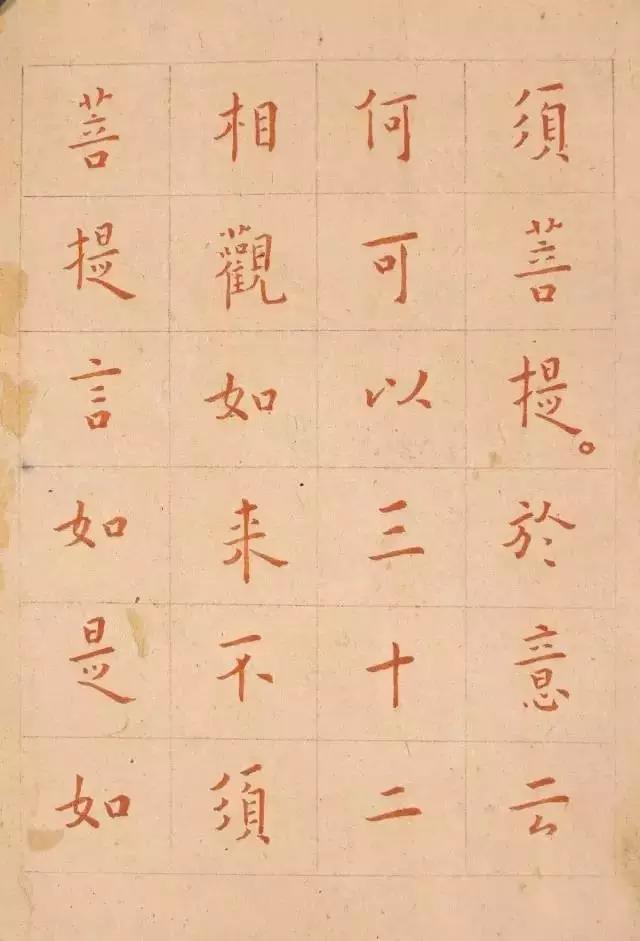 須菩提。於意云
何可以三十二
相觀如来不須
菩提言如是如